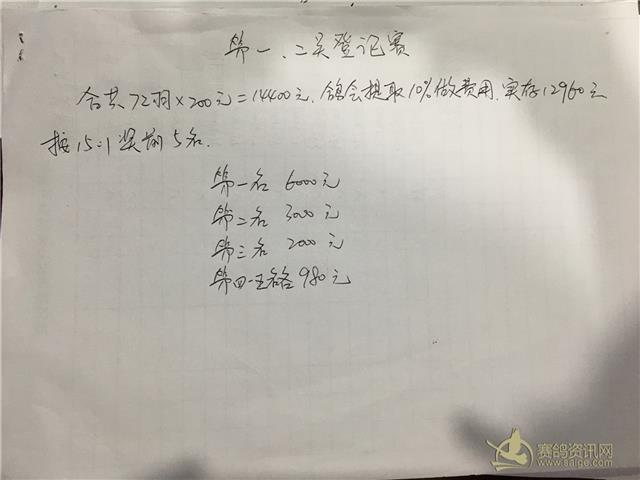 第一、二关登记赛
合共72羽×200元=14400元.鸽会提取10%做费用.实存12960元
按15:1奖前5名.
第一名 6000元
第二名 3000元
第三名 2000元
第四-五名各980元
赛鸽资讯网
www.saige.com